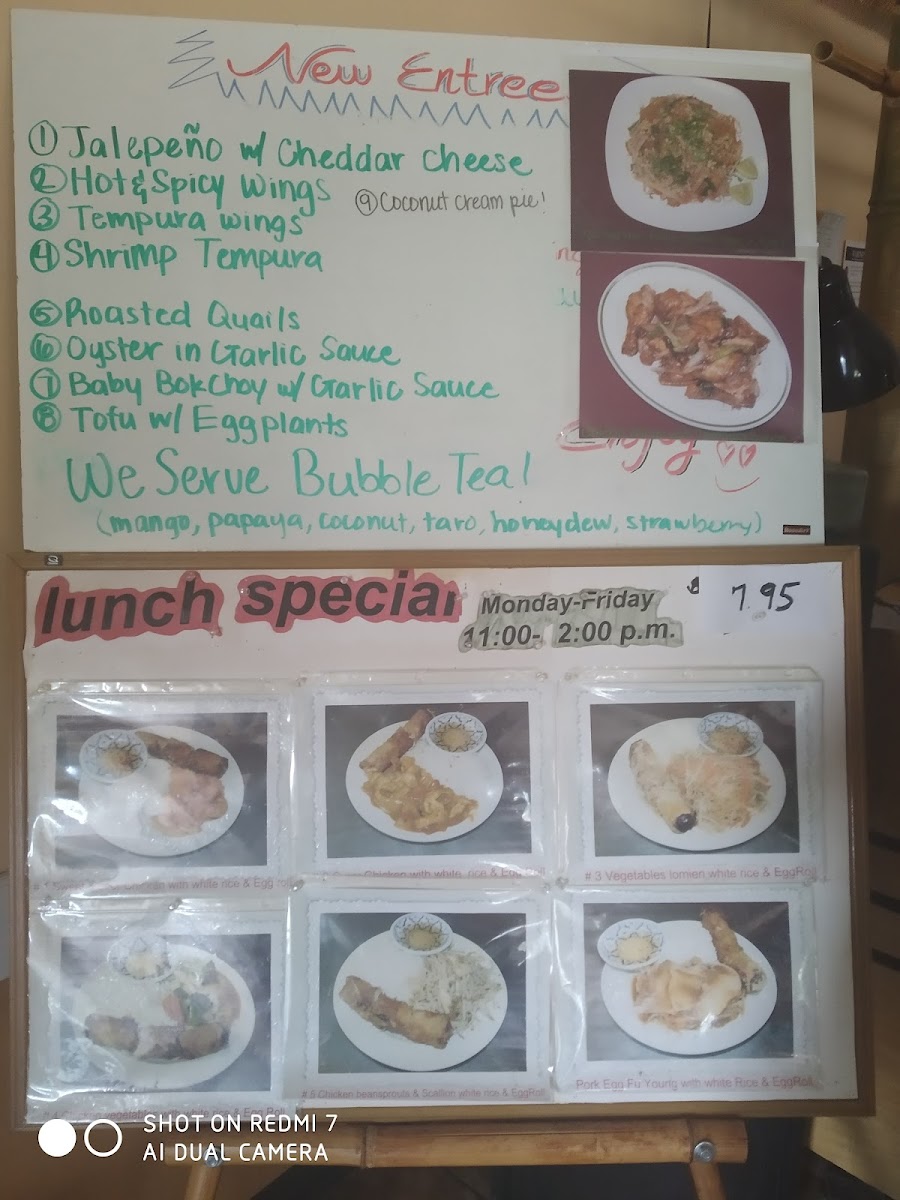 New Entree
① Jalepeño w/ Cheddar cheese
② Hot & Spicy Wings
③ Tempura wings
④ Shrimp Tempura
⑨ Coconut cream pie!
⑤ Roasted Quails
⑥ Oyster in Garlic Sauce
⑦ Baby BokChoy w/ Garlic Sauce
⑧ Tofu w/ Eggplants
Enjoy
We Serve Bubble Tea!
(mango, papaya, coconut, taro, honeydew, strawberry)
lunch special
Monday-Friday
11:00- 2:00 p.m.
$ 7.95
Chicken with white rice & Egg roll
Chicken with white rice & EggRoll
# 3 Vegetables lomien white rice & EggRoll
# 4 vegetable rice & Egg Roll
# 5 Chicken beansprouts & Scallion white rice & EggRoll
Pork Egg Fu Young with white Rice & EggRoll
SHOT ON REDMI 7
AI DUAL CAMERA